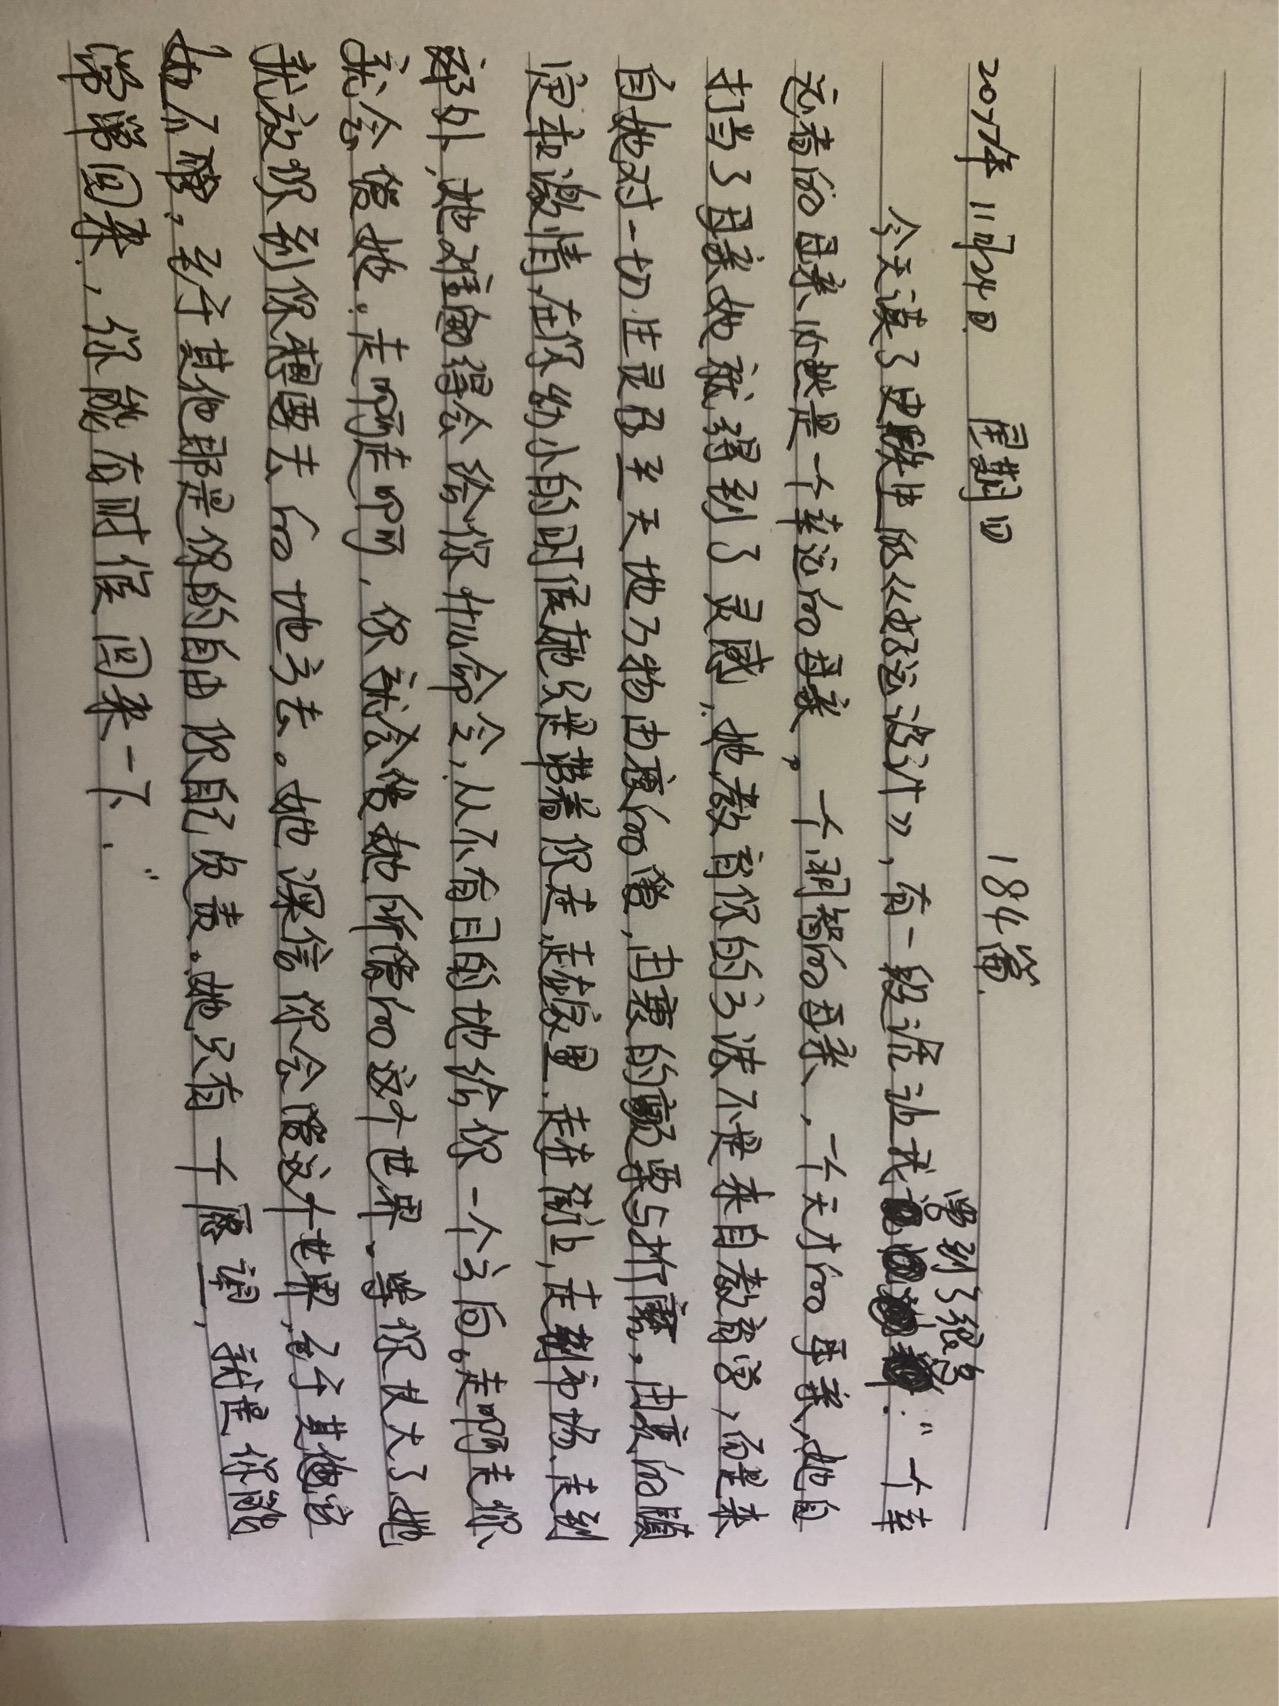 2017年11月24日 星期四 184篇.
今天读了史铁生的《好运设计》,有一段话让我学到了很多:“一个幸
运者的母亲必然是一个幸运的母亲,一个明智的母亲,一个天才的母亲,她自
打当了母亲她就得到了灵感,她教育你的方法不是来自教育学,而是来
自她对一切生灵乃至天地万物由衷的爱,由衷的颤栗与祈祷,由衷的镇
定和激情,在你幼小的时候她只是带着你走,走在家里,走在街上,走到市场,走到
郊外,她难得会给你什么命令,从不有目的地给你一个方向。走啊走你
就会爱她。走啊走啊,你就会爱她所爱的这个世界。等你长大了她
就放你到你想要去的地方去。她深信你会爱这个世界,至于其他应
她不管,至于其他那是你的自由你自己负责。她只有一个愿望,就是你能
常常回来,你能有时候回来一下.”